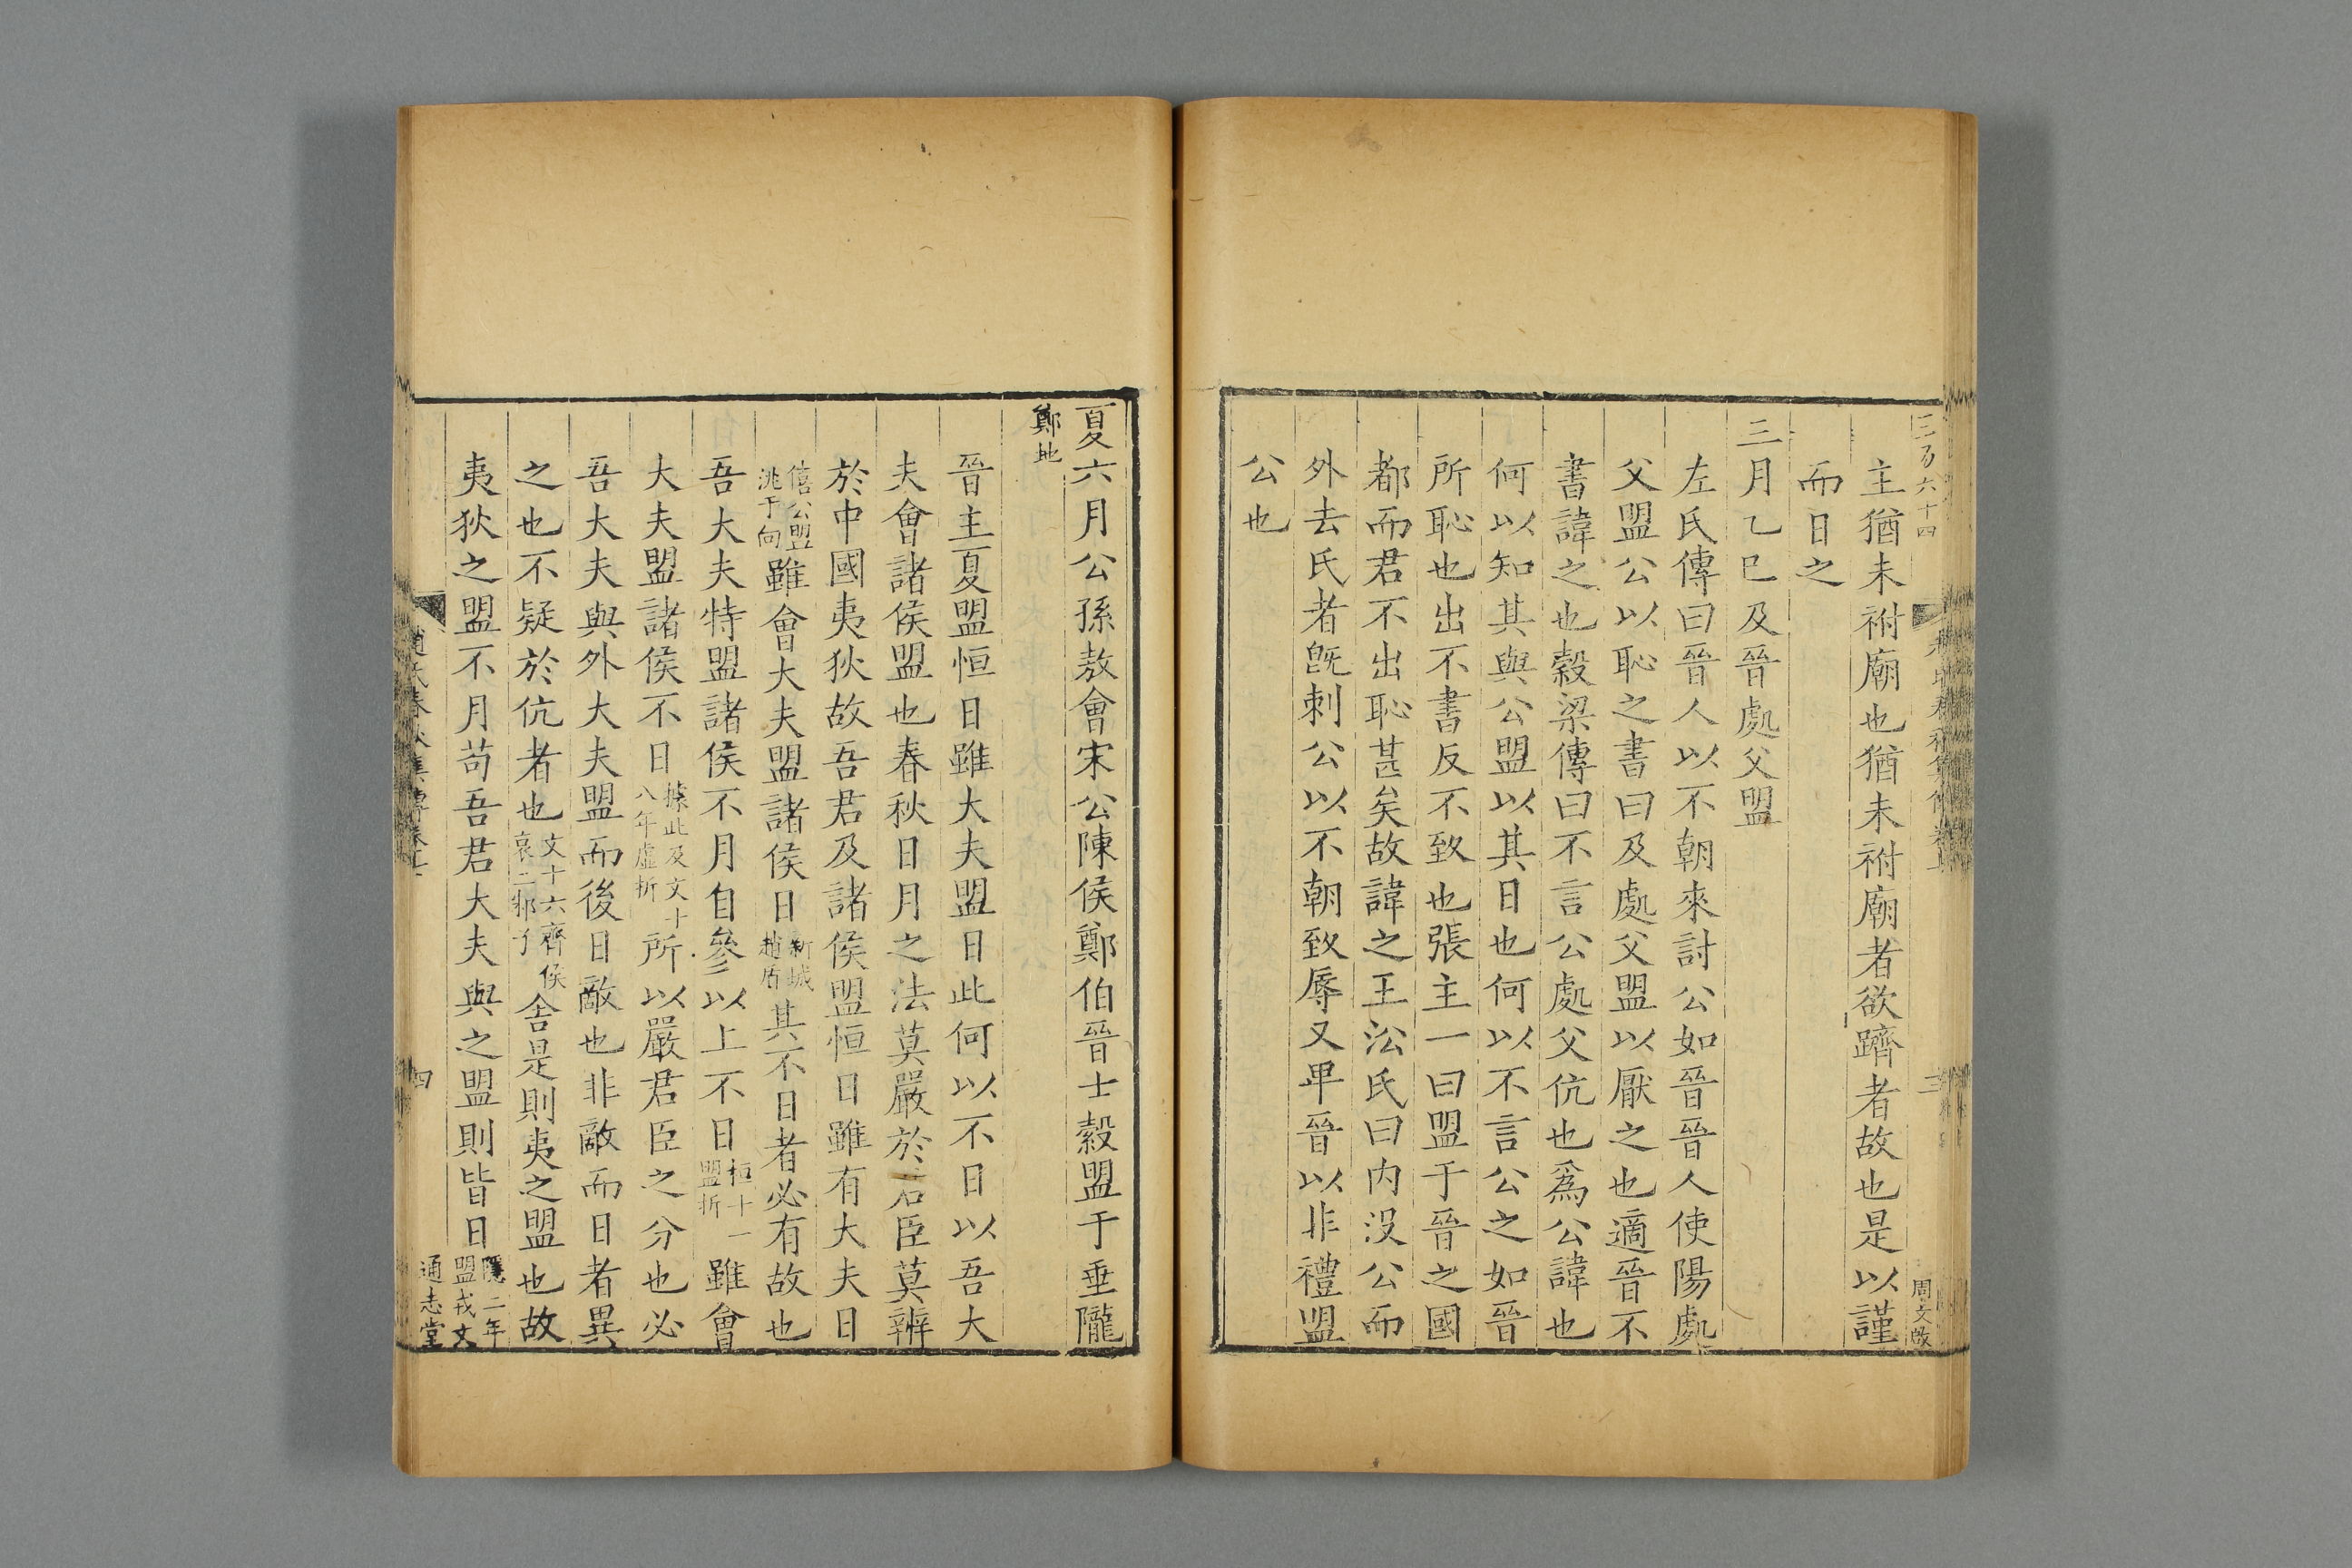 主猶未祔廟也猶未祔廟者欲躋者故也是以謹
而日之
三月乙巳及晉處父盟
左氏傳曰晉人以不朝來討公如晉晉人使陽處
父盟公以恥之書曰及處父盟以厭之也適晉不
書諱之也穀梁傳曰不言公處父伉也爲公諱也
何以知其與公盟以其日也何以不言公之如晉
所恥也出不書反不致也張主一曰盟于晉之國
都而君不出恥甚矣故諱之王沿氏曰内没公而
外去氏者旣刺公以不朝致辱又畢晉以非禮盟
公也
三
夏六月公孫敖會宋公陳侯鄭伯晉士縠盟于垂隴
鄭地
晉主夏盟恒日雖大夫盟日此何以不日以吾大
夫會諸侯盟也春秋日月之法莫嚴於君臣莫辨
於中國夷狄故吾君及諸侯盟恒日雖有大夫日
僖公盟
洮于向
雖會大夫盟諸侯日
新城
趙盾
其不日者必有故也
吾大夫特盟諸侯不月自參以上不日
桓十一
盟折
雖會
大夫盟諸侯不日
據此及文十
八年虛折
所以嚴君臣之分也必
吾大夫與外大夫盟而後日敵也非敵而日者異
之也不疑於伉者也
文十六齊侯
哀二邾子
舍是則夷之盟也故
夷狄之盟不月苟吾君大夫與之盟則皆日
隱二年
盟戎文
趙氏春秋集傳卷
四
通志堂